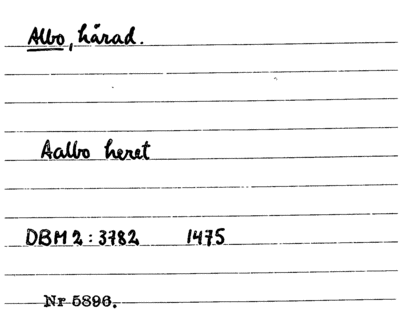 Albo, härad.
Aalbo heret
DBM 2 : 3782 1475
Nr 5896.